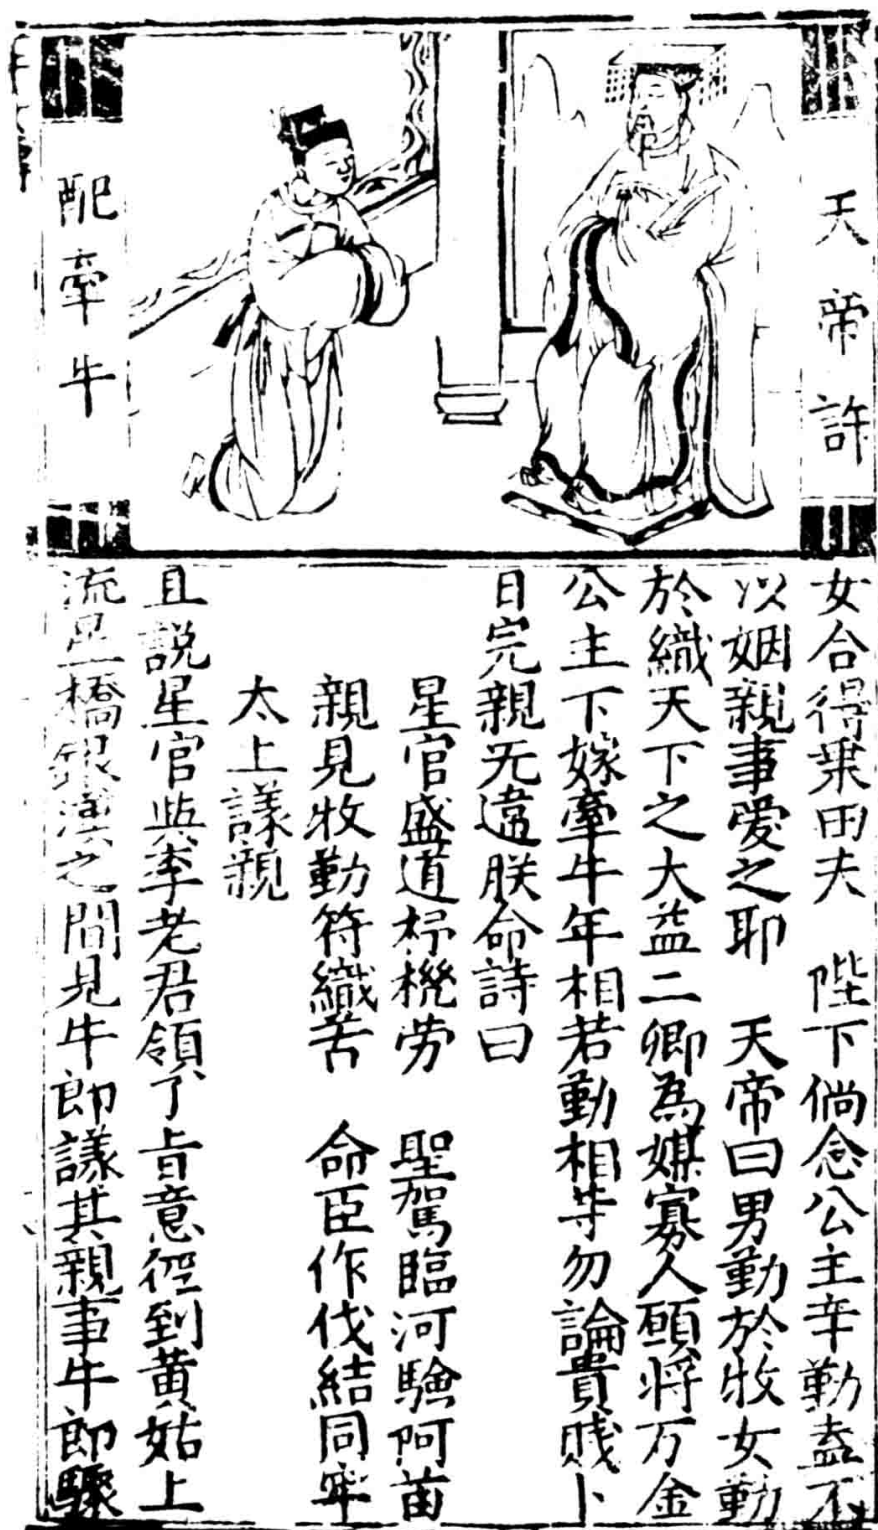 天帝許
配牽牛
女合得乗田夫　陛下倘念公主辛勤盍不
以姻親事愛之耶　天帝曰男勤於牧女勤
於織天下之大益二卿為媒寡人願将万金
公主下嫁牽牛年相若勤相等勿論貴賤卜
日完親无違朕命詩曰
星官盛道杼機劳　聖駕臨河驗阿苗
親見牧勤符織苦　命臣作伐結同牢
太上議親
且説星官與李老君領了旨意徑到黄姑上
流星橋銀漢之間見牛郎議其親事牛郎驟